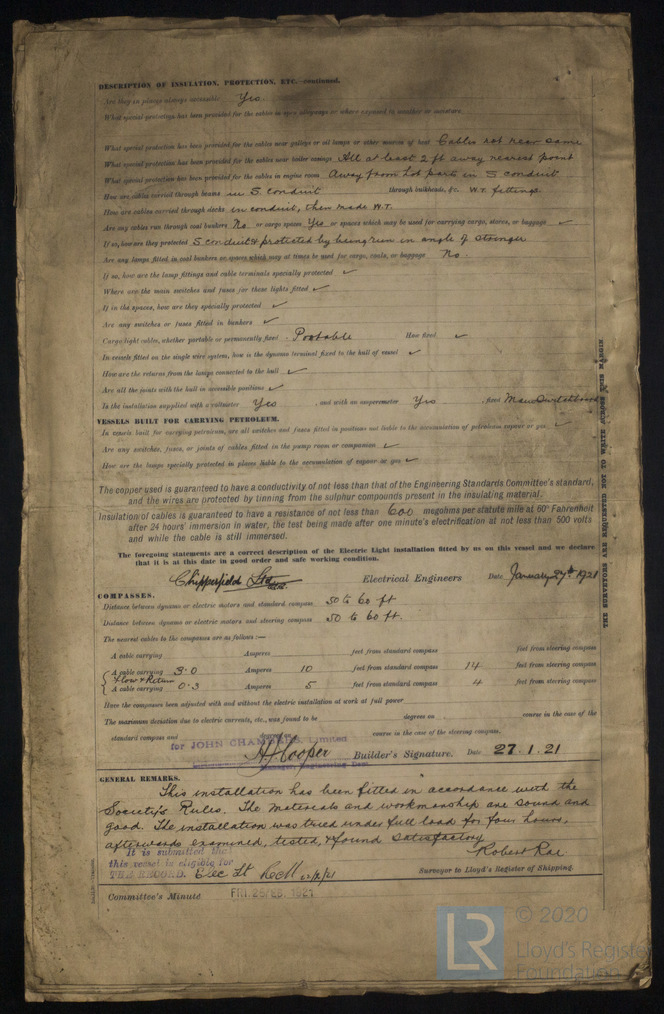 DESCRIPTION OF INSULATION, PROTECTION, ETC.—continued.
Are they in places always accessible Yes.
What special protection has been provided for the cables in open alleyways or where exposed to weather or moisture
What special protection has been provided for the cables near galleys or oil lamps or other sources of heat Cables not near same
What special protection has been provided for the cables near boiler casings All at least 2 ft away nearest point
What special protection has been provided for the cables in engine room Away from hot parts in S conduit
How are cables carried through beams in S. conduit through bulkheads, &c. W.T. fittings
How are cables carried through decks in conduit, then made W.T.
Are any cables run through coal bunkers No or cargo spaces Yes or spaces which may be used for carrying cargo, stores, or baggage ✓
If so, how are they protected S conduit & protected by being run in angle of stronger
Are any lamps fitted in coal bunkers or spaces which may at times be used for cargo, coals, or baggage No.
If so, how are the lamp fittings and cable terminals specially protected ✓
Where are the main switches and fuses for these lights fitted ✓
If in the spaces, how are they specially protected ✓
Are any switches or fuses fitted in bunkers ✓
Cargo light cables, whether portable or permanently fixed Portable How fixed ✓
In vessels fitted on the single wire system, how is the dynamo terminal fixed to the hull of vessel ✓
How are the returns from the lamps connected to the hull ✓
Are all the joints with the hull in accessible positions ✓
Is the installation supplied with a voltmeter Yes , and with an amperemeter Yes , fixed Main Switchboard
VESSELS BUILT FOR CARRYING PETROLEUM.
In vessels built for carrying petroleum, are all switches and fuses fitted in positions not liable to the accumulation of petroleum vapour or gas ✓
Are any switches, fuses, or joints of cables fitted in the pump room or companion ✓
How are the lamps specially protected in places liable to the accumulation of vapour or gas ✓
The copper used is guaranteed to have a conductivity of not less than that of the Engineering Standards Committee's standard,
and the wires are protected by tinning from the sulphur compounds present in the insulating material.
Insulation of cables is guaranteed to have a resistance of not less than 600 megohms per statute mile at 60° Fahrenheit
after 24 hours' immersion in water, the test being made after one minute's electrification at not less than 500 volts
and while the cable is still immersed.
The foregoing statements are a correct description of the Electric Light installation fitted by us on this vessel and we declare
that it is at this date in good order and safe working condition.
Chipperfield Ltd Electrical Engineers Date January 27th 1921
COMPASSES.
Distance between dynamo or electric motors and standard compass 50 to 60 ft
Distance between dynamo or electric motors and steering compass 50 to 60 ft.
The nearest cables to the compasses are as follows:—
A cable carrying Amperes feet from standard compass feet from steering compass
A cable carrying 3.0 Amperes 10 feet from standard compass 14 feet from steering compass
Flow & Return
A cable carrying 0.3 Amperes 5 feet from standard compass 4 feet from steering compass
Have the compasses been adjusted with and without the electric installation at work at full power
The maximum deviation due to electric currents, etc., was found to be degrees on course in the case of the
standard compass and degrees on course in the case of the steering compass.
for JOHN CHAMBERS, Limited
Cooper Builder's Signature. Date 27.1.21
Manager, Engineering Dept.
GENERAL REMARKS.
This installation has been fitted in accordance with the
Society's Rules. The materials and workmanship are sound and
good. The installation was tried under full load for four hours,
afterwards examined, tested, & found satisfactory
It is submitted that
this vessel is eligible for
THE RECORD. Elec Lt
Robert Rae
Surveyor to Lloyd's Register of Shipping.
Committee's Minute FRI. 25 FEB. 1921
THE SURVEYORS ARE REQUESTED NOT TO WRITE ACROSS THIS MARGIN
LR
© 2020
Lloyd's Register
Foundation